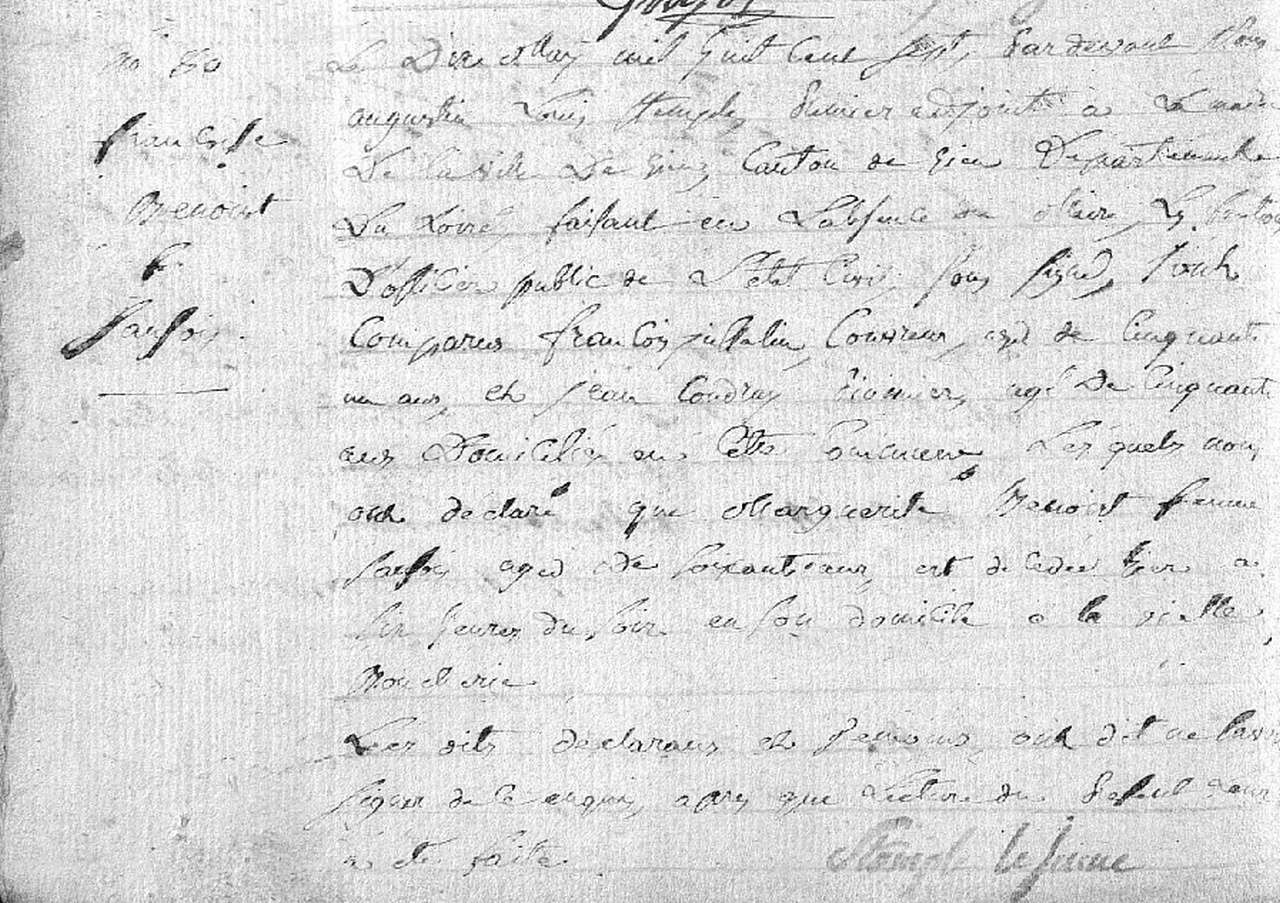 no 80
françoise
Benoist
f.
Sarsois
Le Dix May mil huit Cent Sept, Pardevant Nous
augustin Louis Premier adjoint à La mairie
De la ville De Gien Canton de Gien Departement
Du Loiret faisant en L'absence du Maire, Les fonctions
D'officier public de L'etat Civil, sous signé, sont
Comparus françois Couvreur, agé de Cinquante
un ans, et Jean Coudray agé De Cinquante
ans Domiciliés en Cette Commune, Lesquels nous
ont déclaré que Marguerite Benoist femme
Sarsois agée de soixante ans, est decedée hier a
six heures du soir en son domicile a la vielle
Boucherie
Les dits déclarans et Temoins, ont dit ne savoir
signer de ce enquis, apres que Lecture du Présent Leur
a eté faite.
le Jeune